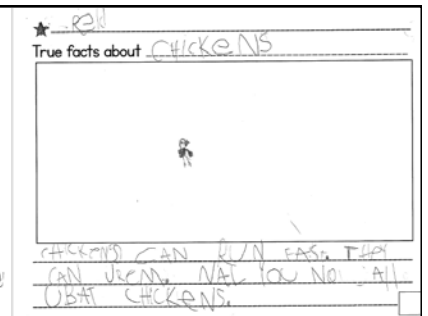 Reid
True facts about CHICKeNS
CHICKENS CAN RUN FAST. THEY
CAN JREM. NAL YOU NO All
UBAT CHICKeNS.